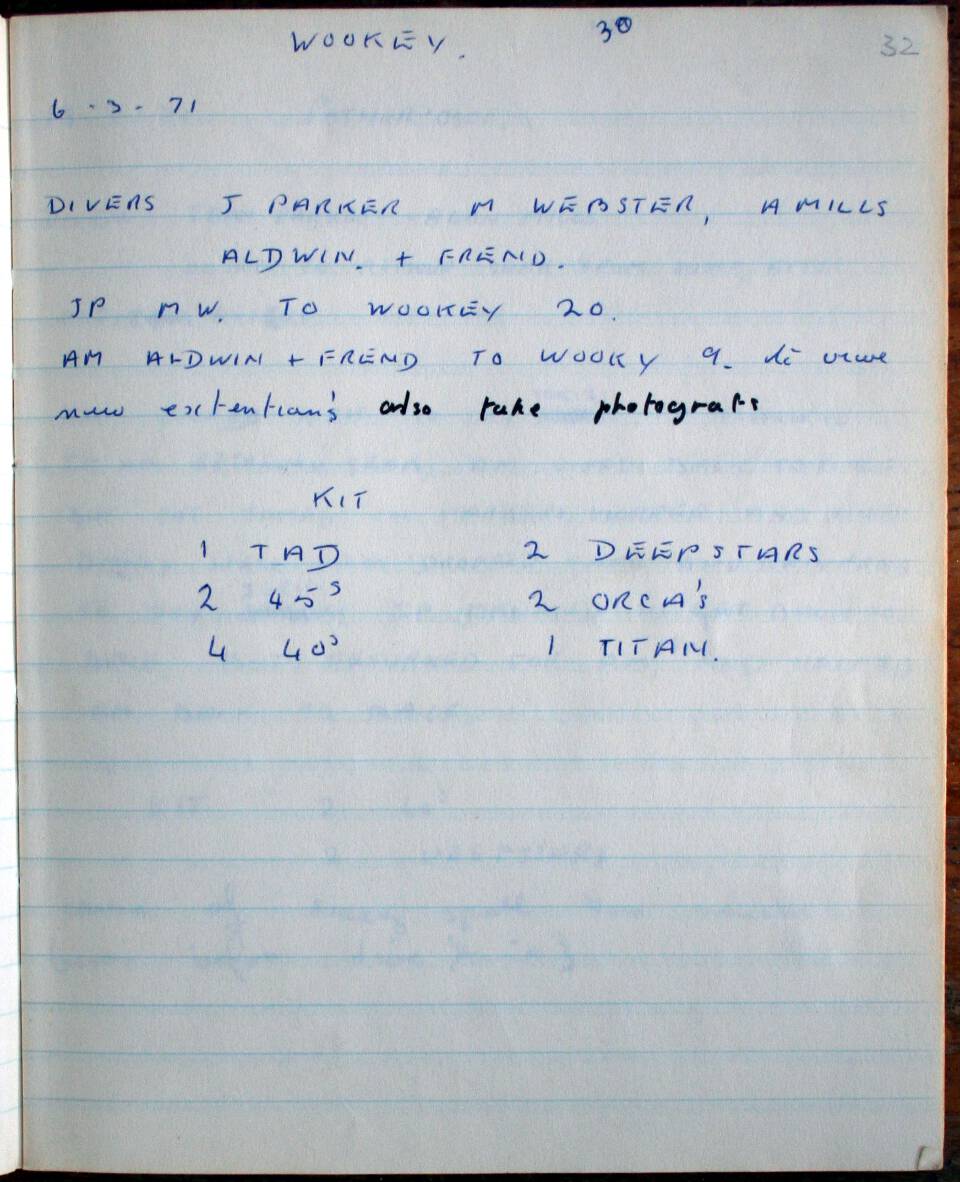 WOOKEY. 30 32
6-3-71
DIVERS J PARKER M WEBSTER, A MILLS
ALDWIN. + FREND.
JP MW. TO WOOKEY 20.
AM ALDWIN + FREND TO WOOKY 9. to
new extention's also take photografs
KIT
1 TAD 2 DEEPSTARS
2 45s 2 ORCA's
4 40s 1 TITAN.